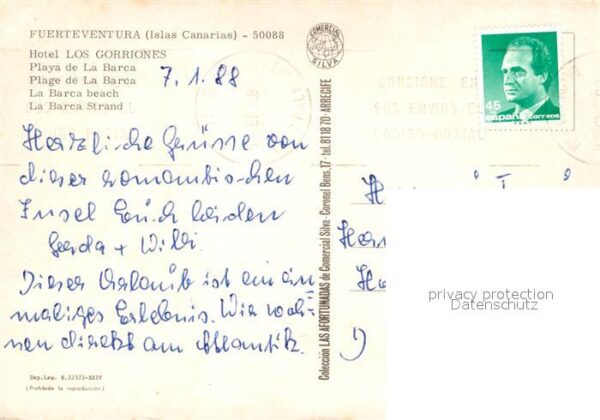 FUERTEVENTURA (Islas Canarias) - 50088
Hotel LOS GORRIONES
Playa de La Barca
Plage de La Barca
La Barca beach
La Barca Strand
7.1.88
COMERCIAL
SILVA
CONSIGNE EN
SUS ENVIOS EL
CODIGO POSTAL
45
españa CORREOS
Herzliche Grüsse von
dieser romantischen
Insel Euch beiden
Gerda + Willi.
Dieser Urlaub ist ein ein
maliges Erlebnis. Wir woh
nen direkt am Atlantik.
Colección LAS AFORTUNADAS de Comercial Silva - Coronel Bens, 17 - tel. 81 18 70 - ARRECIFE
privacy protection
Datenschutz
Dep. Leg. B. 22372-XXIV
(Prohibida la reproducción)